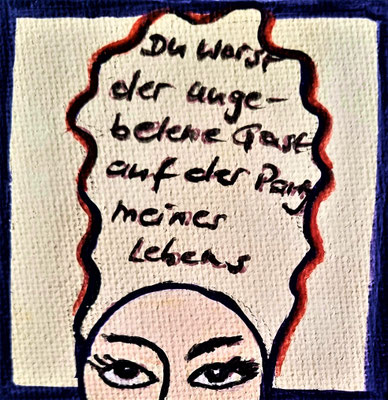 Du warst
der unge-
betene Gast
auf der Party
meines
Lebens